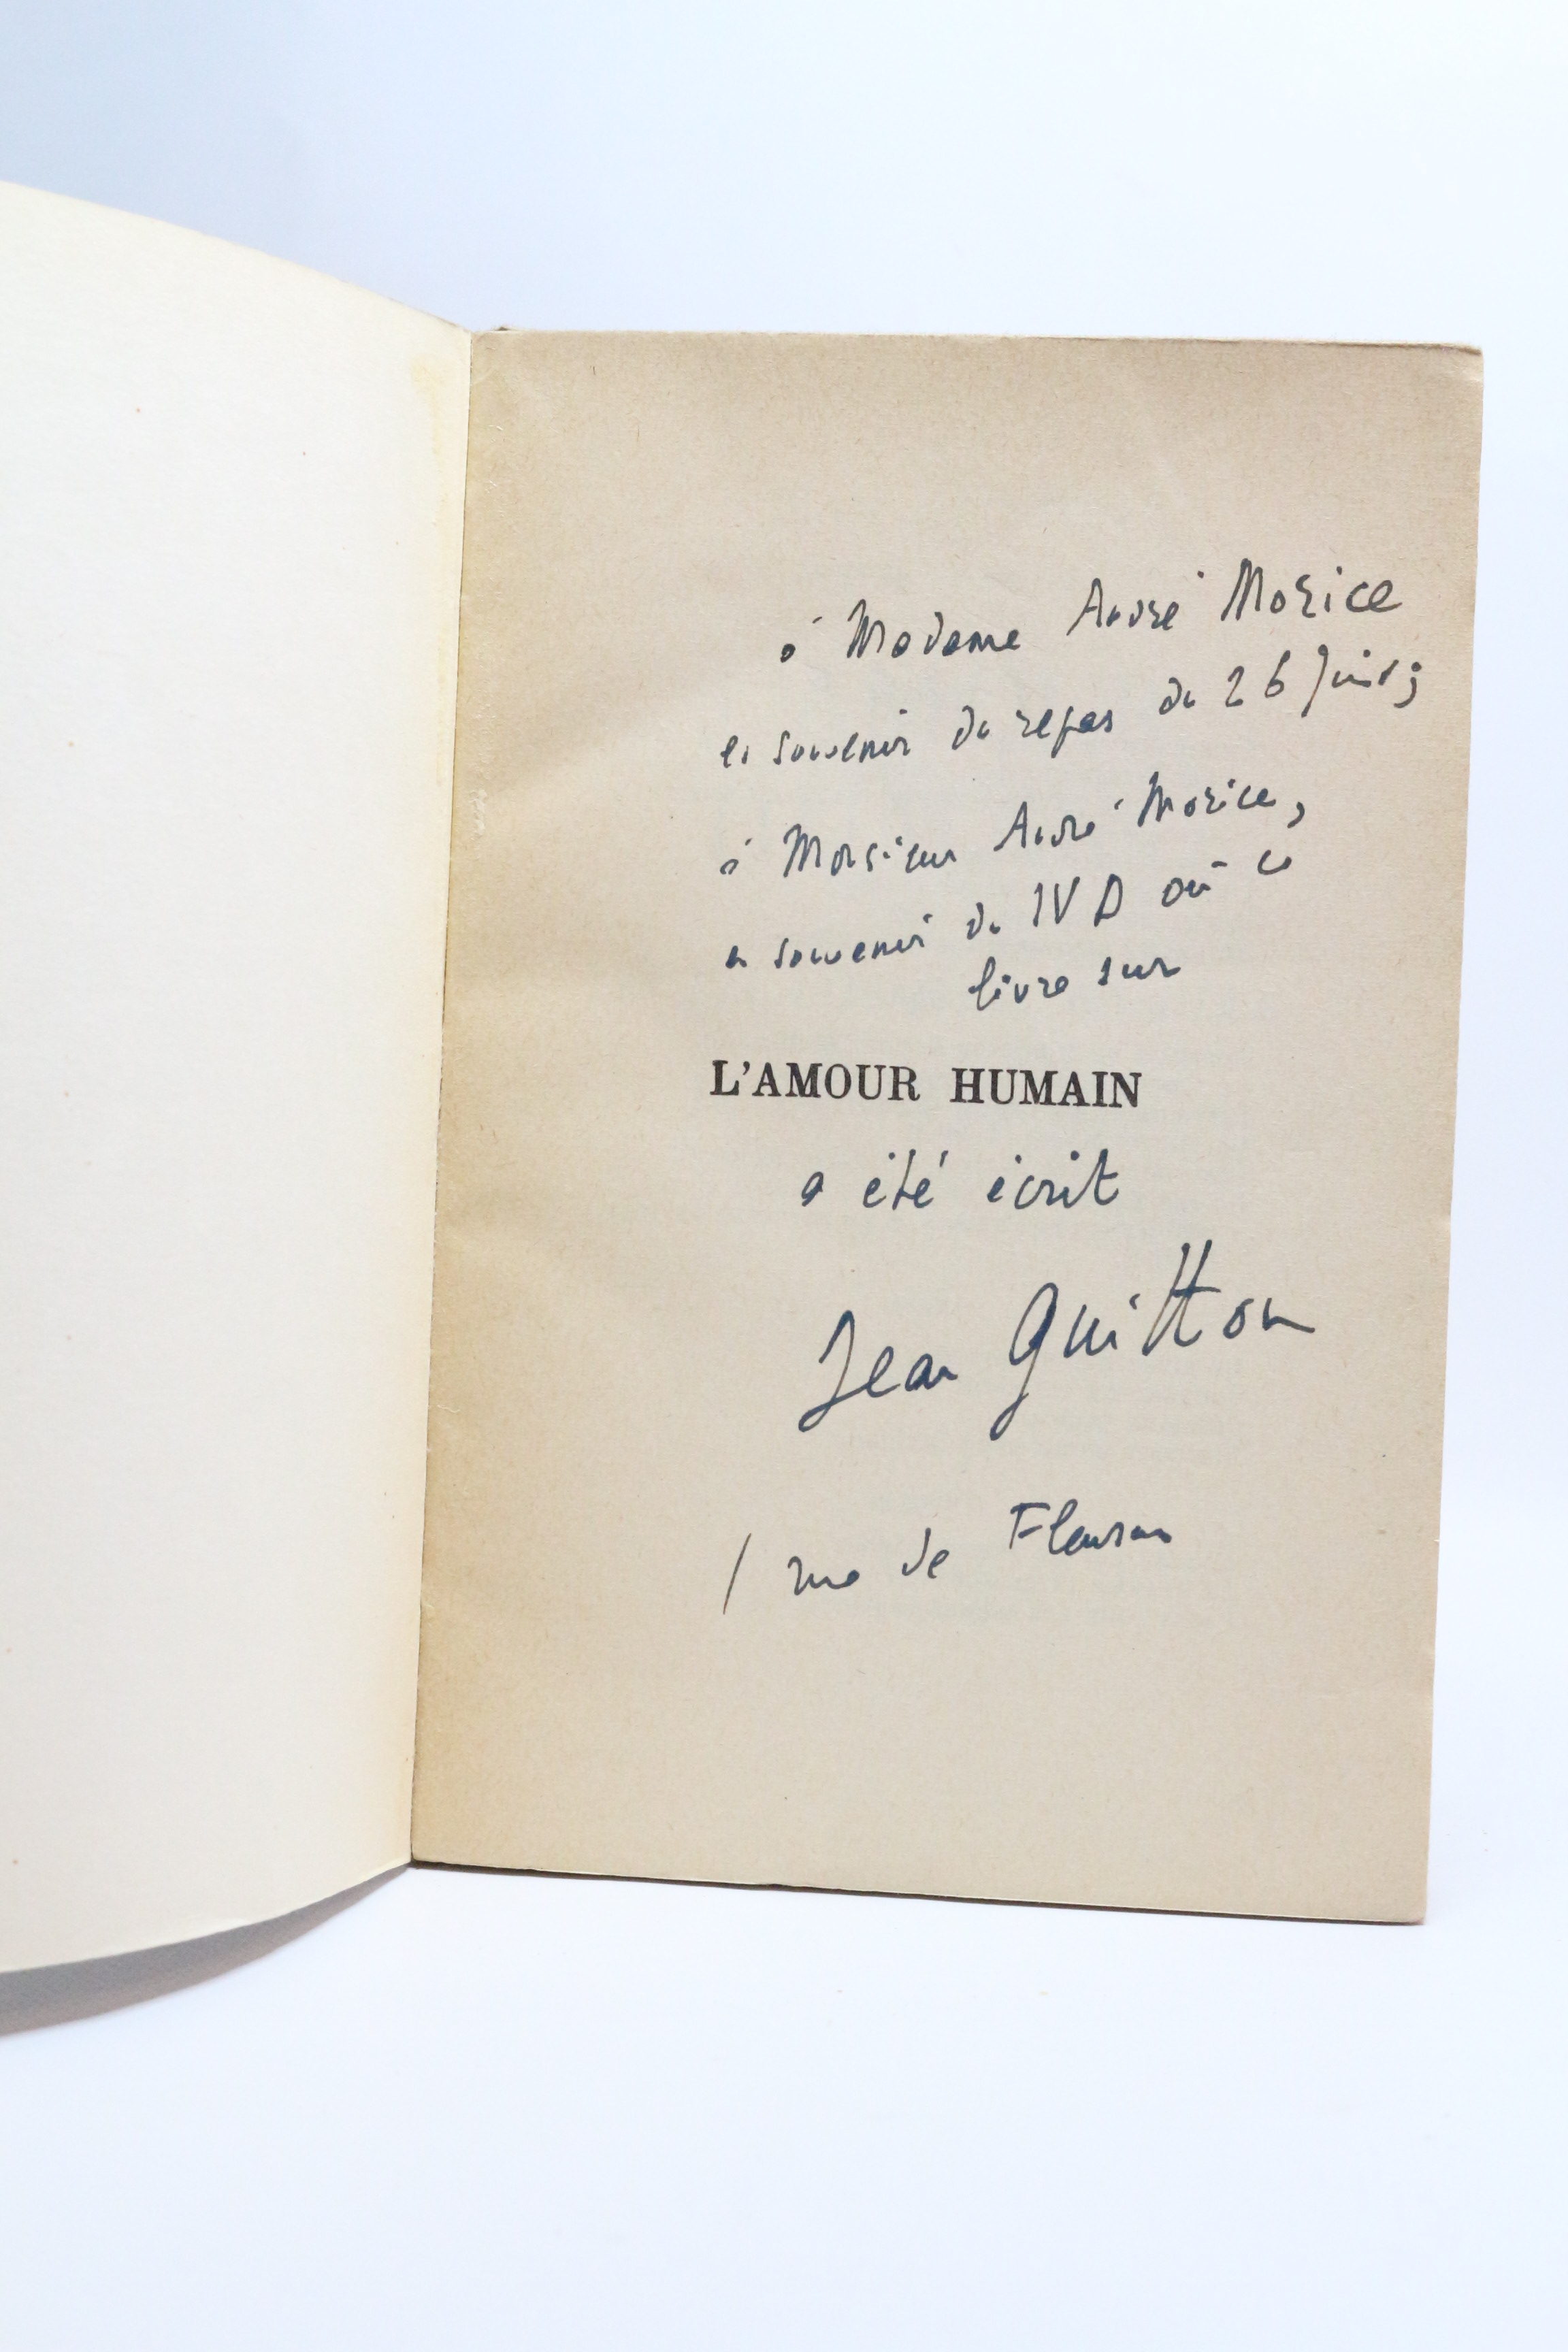 à Madame André Morice
en souvenir du repas du 26 Juin ;
à Monsieur André Morice,
en souvenir du IV D où ce
livre sur
L'AMOUR HUMAIN
a été écrit
Jean Guitton
1 rue de Fleurus